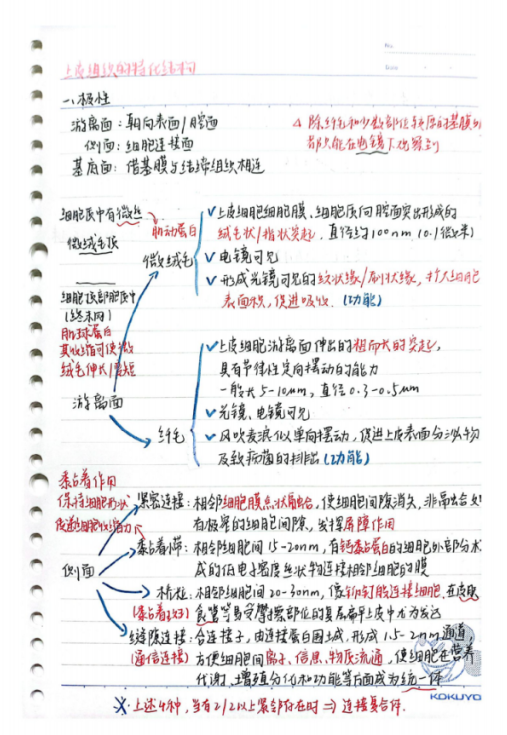 No.
Date
上皮组织的特化结构
一、极性
游离面：朝向表面/腔面
侧面：细胞连接面
基底面：借基膜与结缔组织相连
△ 除纤毛和少数部位较厚的基膜外
都只能在电镜下观察到
细胞质中有微丝
微绒毛底
细胞顶部胞质中
(终末网)
肌球蛋白
其收缩可使微
绒毛伸长/变短
游离面
肌动蛋白
微绒毛
✓上皮细胞细胞膜、细胞质向腔面突出形成的
绒毛状/指状突起，直径约100nm (0.1微米)
✓ 电镜可见
✓ 形成光镜可见的纹状缘/刷状缘，扩大细胞
表面积，促进吸收. (功能)
纤毛
✓上皮细胞游离面伸出的粗而长的突起，
具有节律性定向摆动的能力
一般长 5-10μm，直径 0.3-0.5μm
✓ 光镜、电镜可见
✓ 风吹麦浪似单向摆动，促进上皮表面分泌物
及致病菌的排出 (功能)
黏着作用
保持细胞形状
侧面
紧密连接：相邻细胞膜点状融合，使细胞间隙消失，非融合处
有极窄的细胞间隙，发挥屏障作用
黏着小带：相邻细胞间 15-20nm，有钙黏蛋白的细胞外部分
成的低电子密度丝状物连接相邻细胞的膜
桥粒：相邻细胞间 20-30nm，像铆钉般连接细胞，在皮肤
食管等易受摩擦部位的复层扁平上皮中尤为发达
缝隙连接：
(通信连接)
由连接蛋白围成，形成 1.5-2nm 通道
方便细胞间离子、信息、物质流通，使细胞在营养
代谢、增殖分化和功能等方面成为统一体
※. 上述4种，当有2/2以上紧邻存在时 ⇒ 连接复合体.
KOKUYO